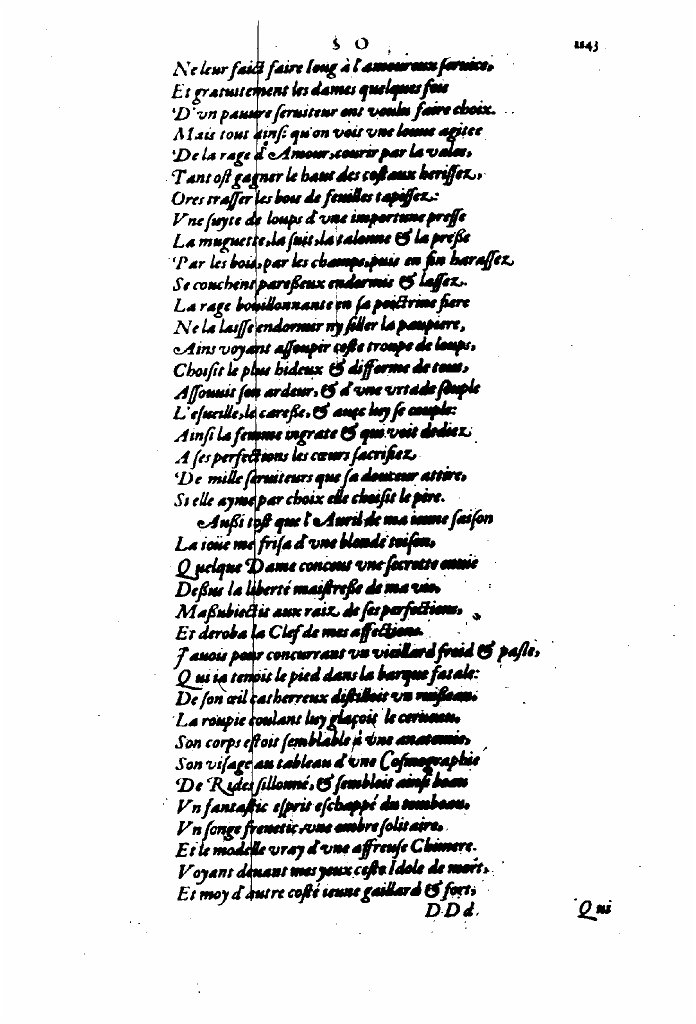 S O 1143
Ne leur faict faire loug à l'amoureux seruice,
Et gratuitement les dames quelques fois
D'vn pauure seruiteur ont voulu faire choix.
Mais tout ainsi qu'on voit vne louue agitee
De la rage d'Amour, courir par la valee,
Tantost gagner le haut des costaux herissez,
Ores trasser les bois de feuilles tapissez:
Vne suyte de loups d'vne importune presse
La muguette, la suit, la talonne & la preße
Par les bois, par les champs, puis en fin harassez
Se couchent pareßeux endormis & lassez.
La rage bouillonnante en sa poictrine fiere
Ne la laisse endormir ny siller la paupiere,
Ains voyant assoupir ceste troupe de loups,
Choisit le plus hideux & difforme de tous,
Assouuit son ardeur, & d'vne souple
L'esueille, le careße, & auec luy se couple:
Ainsi la femme ingrate & qui voit dediez
A ses perfections les cœurs sacrifiez
De mille seruiteurs que sa douceur attire,
Si elle ayme par choix elle choisit le pire.
Außi tost que l'Auril de ma ieune saison
La ioüe me frisa d'vne blonde toison,
Quelque Dame conceus vne secrette enuie
Deßus la liberté maistreße de ma vie,
Maßubiectis aux raiz de ses perfections,
Et deroba la Clef de mes affections.
J'auois pour concurrant vn vieillard froid & pasle,
Qui ia tenoit le pied dans la barque fatale:
De son œil catherreux distilloit vn ruisseau,
La roupie coulant luy glaçoit le cerueau,
Son corps estoit semblable à vne anatomie,
Son visage au tableau d'vne Cosmographie
De Rides sillonné, & sembloit ainsi beau
Vn fantastic esprit eschappé du tombeau,
Vn songe frenetic, vne ombre solitaire,
Et le modelle vray d'vne affreuse Chimere.
Voyant deuant mes yeux ceste Idole de mort,
Et moy d'autre costé ieune gaillard & fort,
DDd. Qui